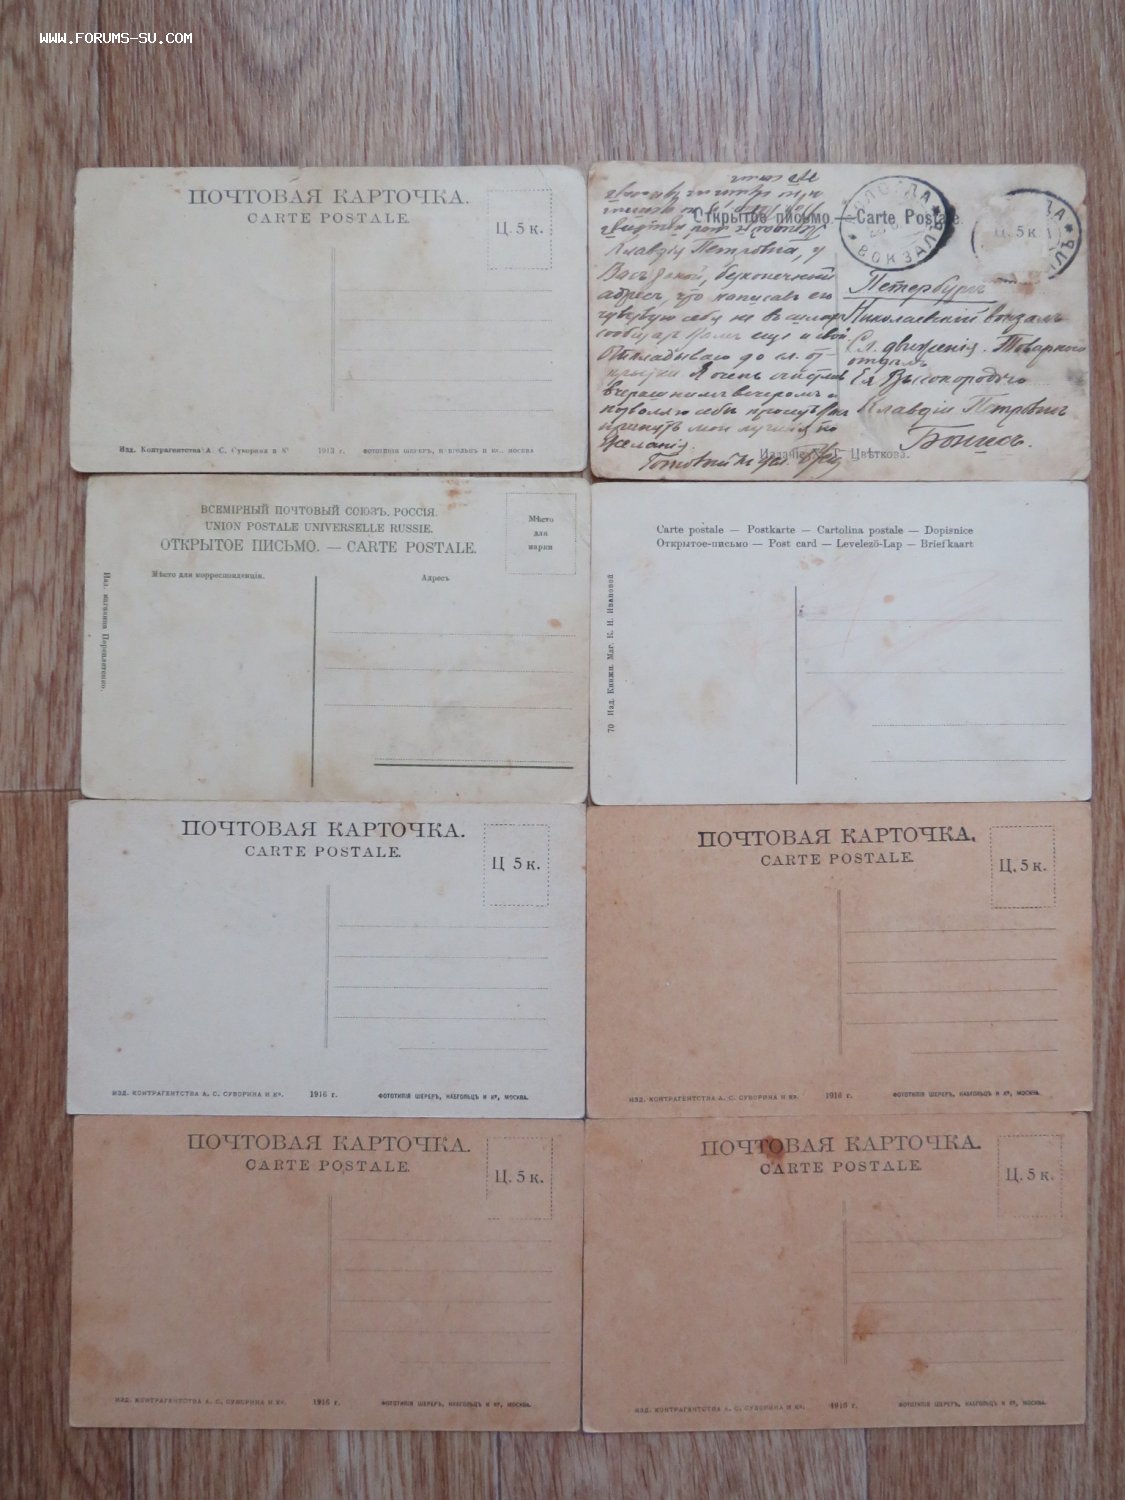 www.forums-su.com
ПОЧТОВАЯ КАРТОЧКА.
CARTE POSTALE.
Ц. 5 к.
Изд. Контрагентства А. С. Суворина и Кº 1913 г. ФОТОТИПІЯ ШЕРЕРЪ, НАБГОЛЬЦЪ И Кº, МОСКВА
Открытое письмо. — Carte Postale.
ВОЛОГДА
ВОКЗАЛЪ
Ц. 5 к.
Клавдія Петровна, у
Васъ такой, безконечный
адресъ, что написавъ его
чувствую себя не въ
сообщать Вамъ еще и свой.
Откладываю до сл. от-
крытки Я очень
вчерашнимъ вечеромъ и
позволяю себѣ просить Васъ
принять мои лучшія по-
желанія.
Готовый къ усл.
Петербургъ
Николаевскій вокзалъ
Сл. движенія. Товарного
отдѣлъ
Ея Высокородію
Клавдіи Петровнѣ
Изданіе Т. Цвѣткова.
ВСЕМІРНЫЙ ПОЧТОВЫЙ СОЮЗЪ. РОССІЯ.
UNION POSTALE UNIVERSELLE RUSSIE.
ОТКРЫТОЕ ПИСЬМО. — CARTE POSTALE.
Мѣсто
для
марки
Мѣсто для корреспонденціи.
Адресъ
Изд. магазина Переплетенко.
Carte postale — Postkarte — Cartolina postale — Dopisnice
Открытое-письмо — Post card — Levelező-Lap — Briefkaart
70 Изд. Книжн. Маг. К. И. Ивановой
ПОЧТОВАЯ КАРТОЧКА.
CARTE POSTALE.
Ц 5 к.
ИЗД. КОНТРАГЕНТСТВА А. С. СУВОРИНА И Кº. 1916 г. ФОТОТИПІЯ ШЕРЕРЪ, НАБГОЛЬЦЪ И Кº, МОСКВА.
ПОЧТОВАЯ КАРТОЧКА.
CARTE POSTALE.
Ц. 5 к.
ИЗД. КОНТРАГЕНТСТВА А. С. СУВОРИНА И Кº. 1916 г. ФОТОТИПІЯ ШЕРЕРЪ, НАБГОЛЬЦЪ И Кº, МОСКВА.
ПОЧТОВАЯ КАРТОЧКА.
CARTE POSTALE.
Ц. 5 к.
ИЗД. КОНТРАГЕНТСТВА А. С. СУВОРИНА И Кº. 1916 г. ФОТОТИПІЯ ШЕРЕРЪ, НАБГОЛЬЦЪ И Кº, МОСКВА.
ПОЧТОВАЯ КАРТОЧКА.
CARTE POSTALE.
Ц. 5 к.
ИЗД. КОНТРАГЕНТСТВА А. С. СУВОРИНА И Кº. 1916 г. ФОТОТИПІЯ ШЕРЕРЪ, НАБГОЛЬЦЪ И Кº, МОСКВА.